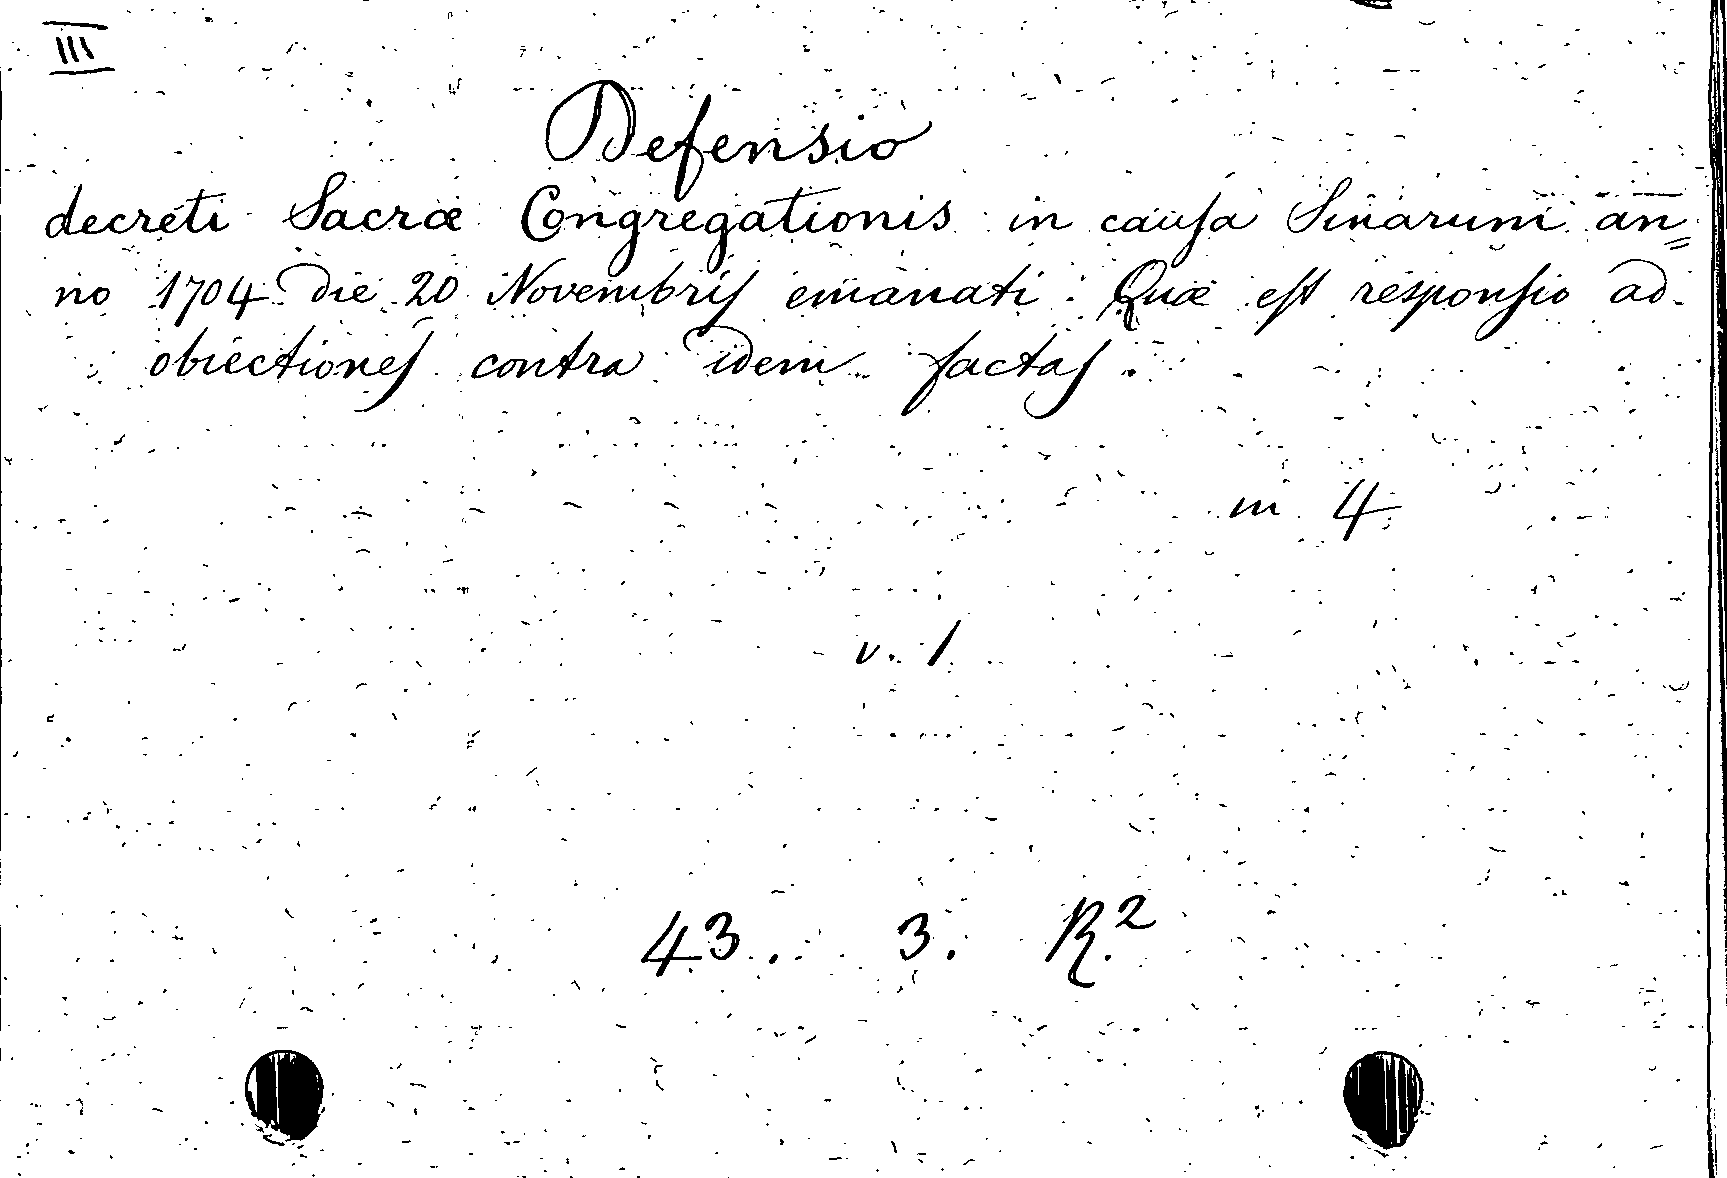 III
Defensio
decreti Sacræ Congregationis in causa Sinarum an=
no 1704 die 20 Novembris emanati: Quæ est responsio ad
obiectiones contra idem factas.
in 4
v. 1
43. 3. R.²